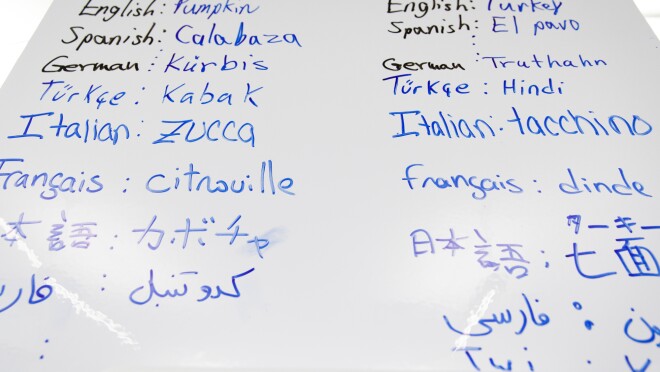 English: Pumpkin
Spanish: Calabaza
German: Kürbis
Türkçe: Kabak
Italian: Zucca
Français: Citrouille
本語: カボチャ
کدو تنبل :
English: Turkey
Spanish: El pavo
German: Truthahn
Türkçe: Hindi
Italian: tacchino
français: dinde
ターキー
日本語: 七面
فارسی :
Twi :